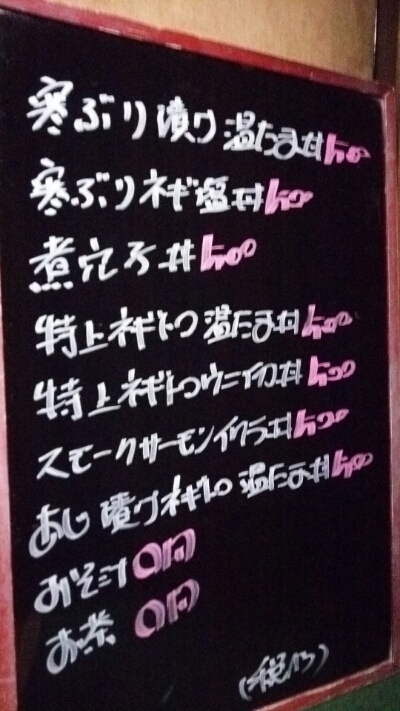 寒ぶり漬け温たま丼500
寒ぶりネギ塩丼500
煮穴子丼500
特上ネギトロ温たま丼500
特上ネギトロウニイカ丼500
スモークサーモンイクラ丼500
あじ漬けネギトロ温たま丼500
おみそ汁0円
お茶0円